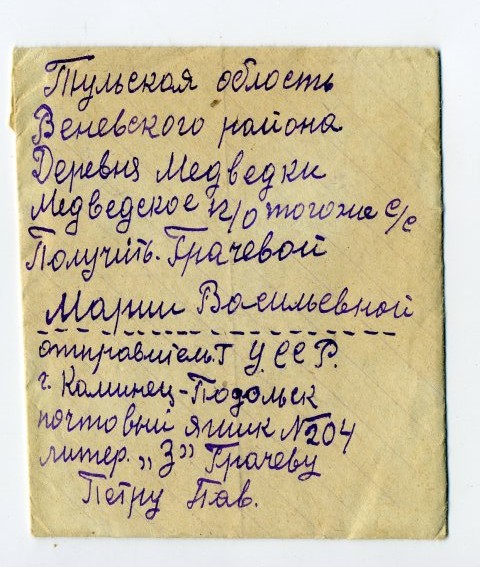 Тульская область
Веневского района
Деревня Медведки
Медведское п/о того же с/с
Получить. Грачевой
Марии Васильевной
отправитель. УССР.
г. Каминец-Подольск
почтовый ящик №204
литер. „З” Грачеву
Петру Пав.